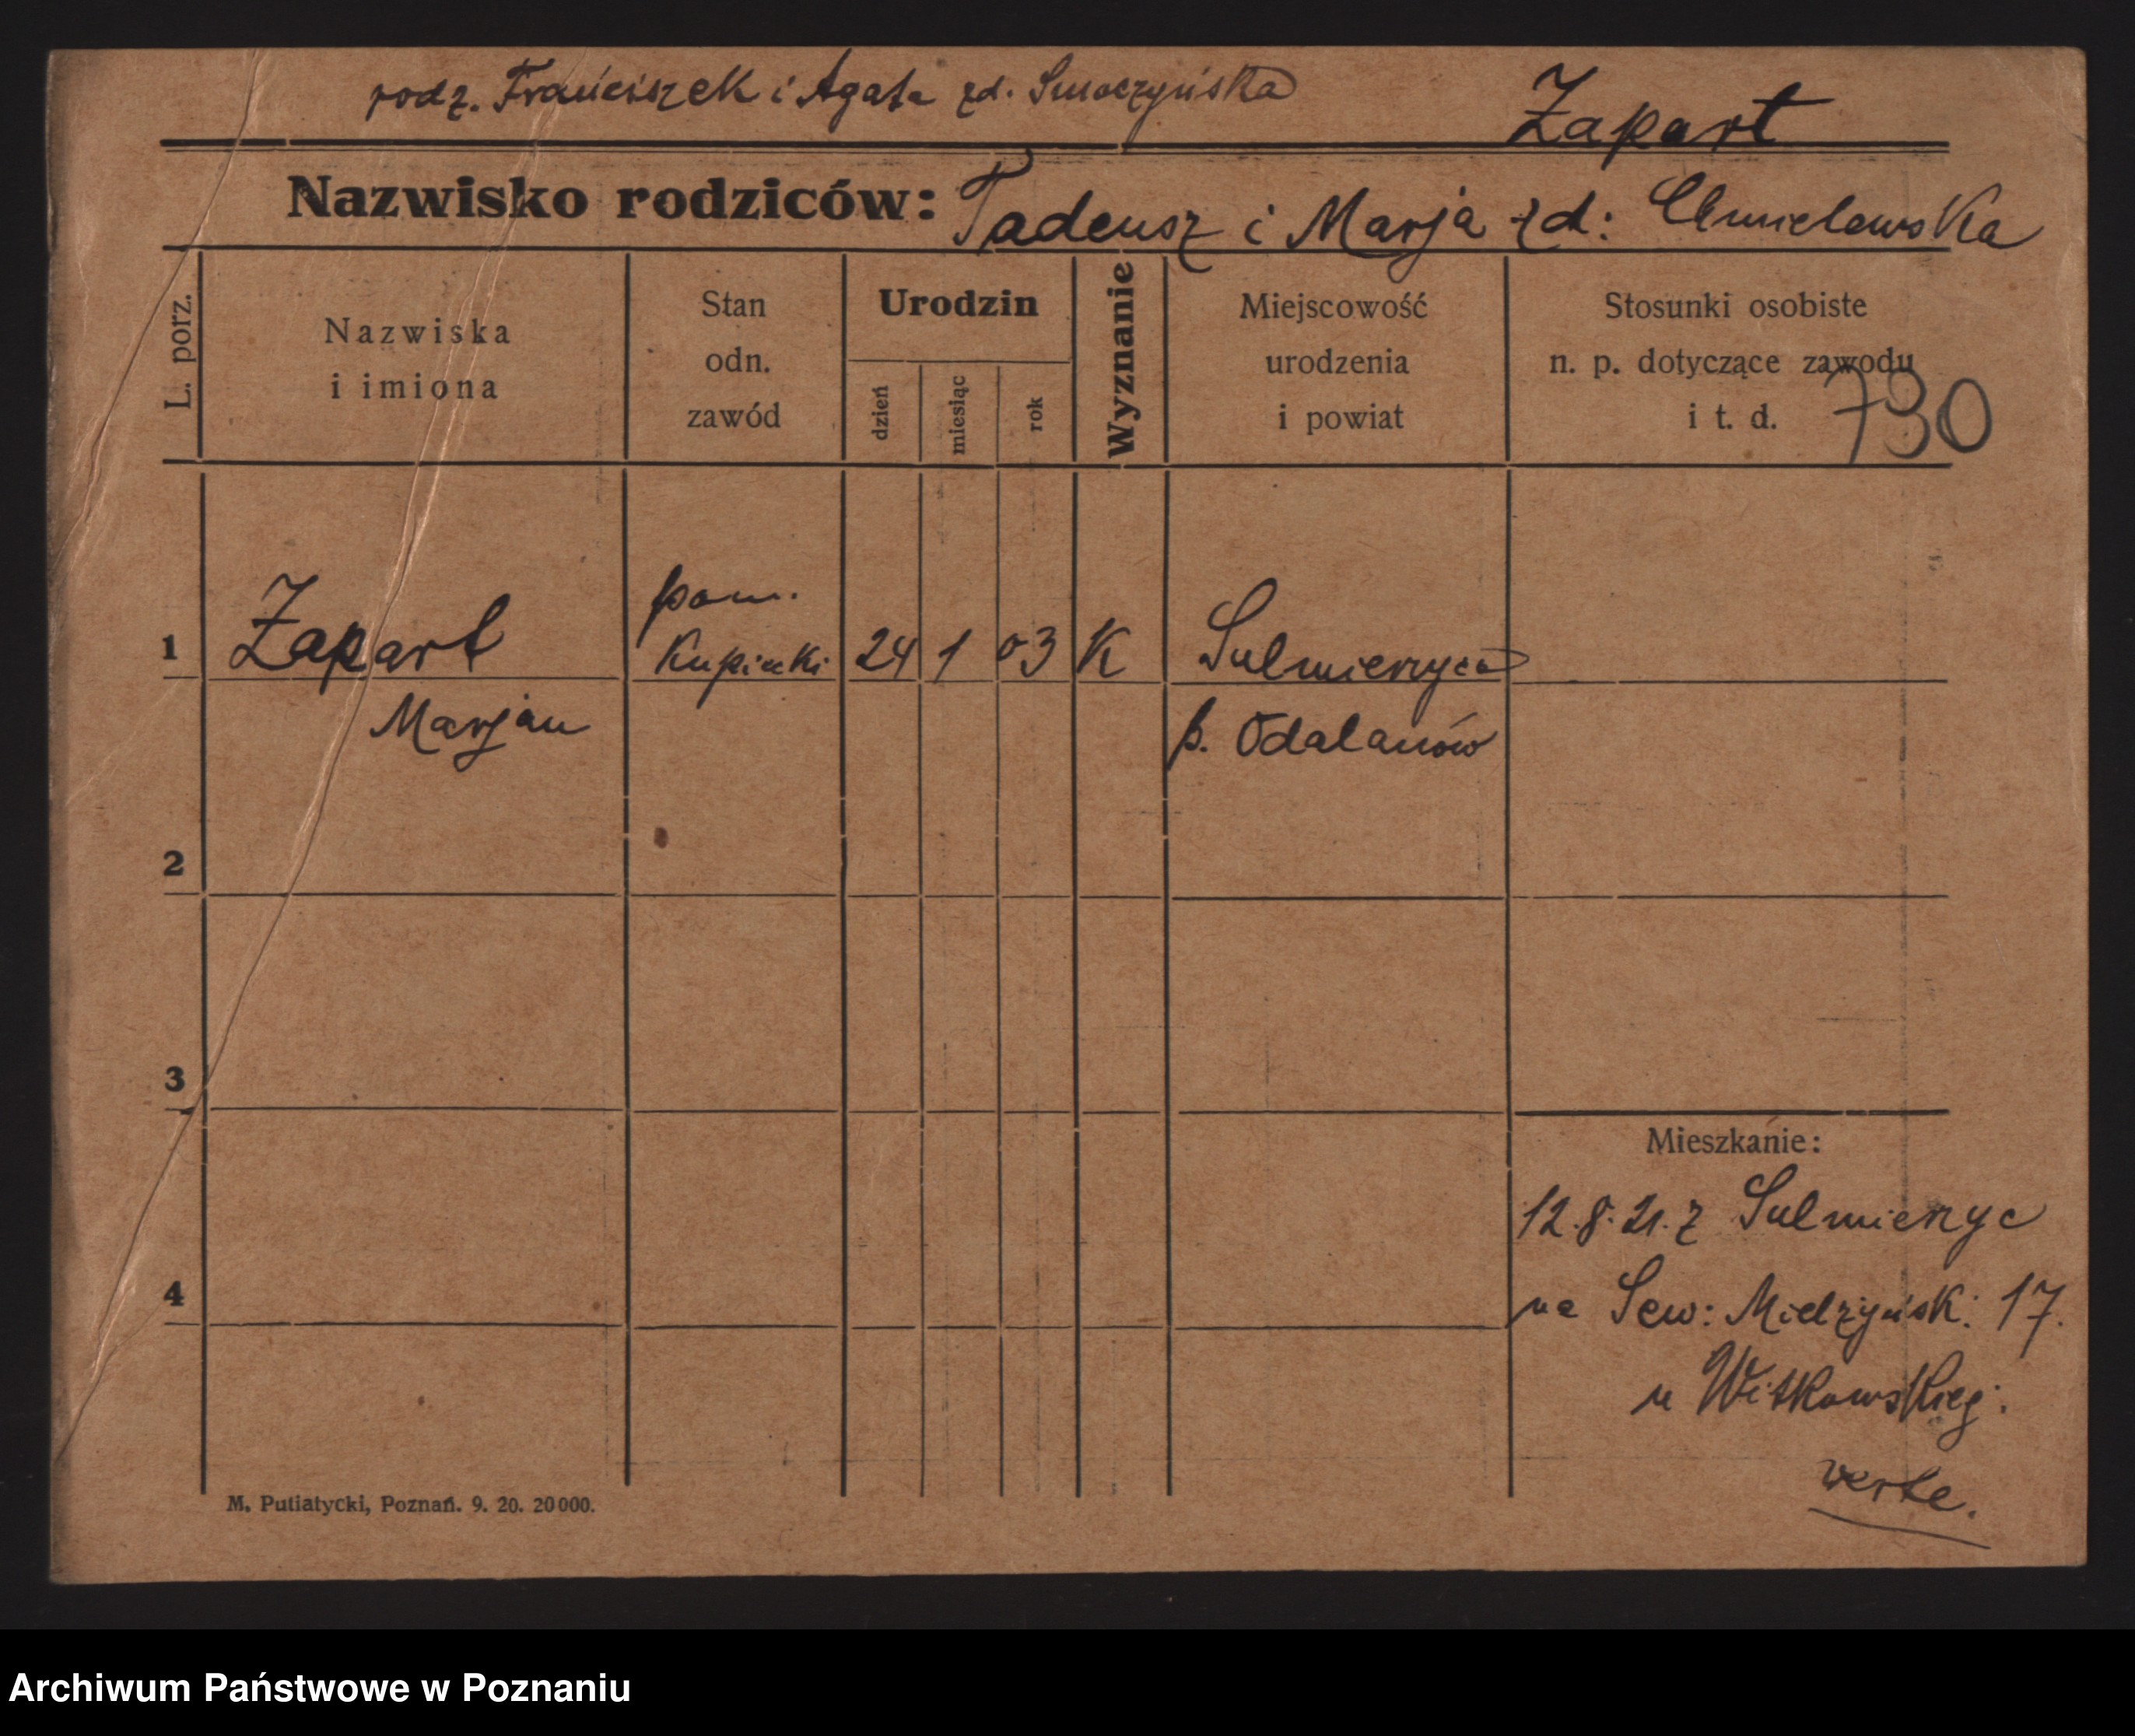 rodz. Franciszek i Agata zd. Smoczyńska
Zapart
Nazwisko rodziców: Tadeusz i Marja zd: Chmielewska
L. porz.
Nazwiska
i imiona
Stan
odn.
zawód
Urodzin
dzień
miesiąc
rok
Wyznanie
Miejscowość
urodzenia
i powiat
Stosunki osobiste
n. p. dotyczące zawodu
i t. d.
730
1
Zapart
Marjan
pom.
Kupiecki
24 1 03 K
Sulmierzyce
p. Odalanów
2
3
4
Mieszkanie:
12.8.21. z Sulmierzyc
na Sew: Mielżyńsk: 17.
u Witkowskieg:
verte.
M. Putiatycki, Poznań. 9. 20. 20000.
Archiwum Państwowe w Poznaniu